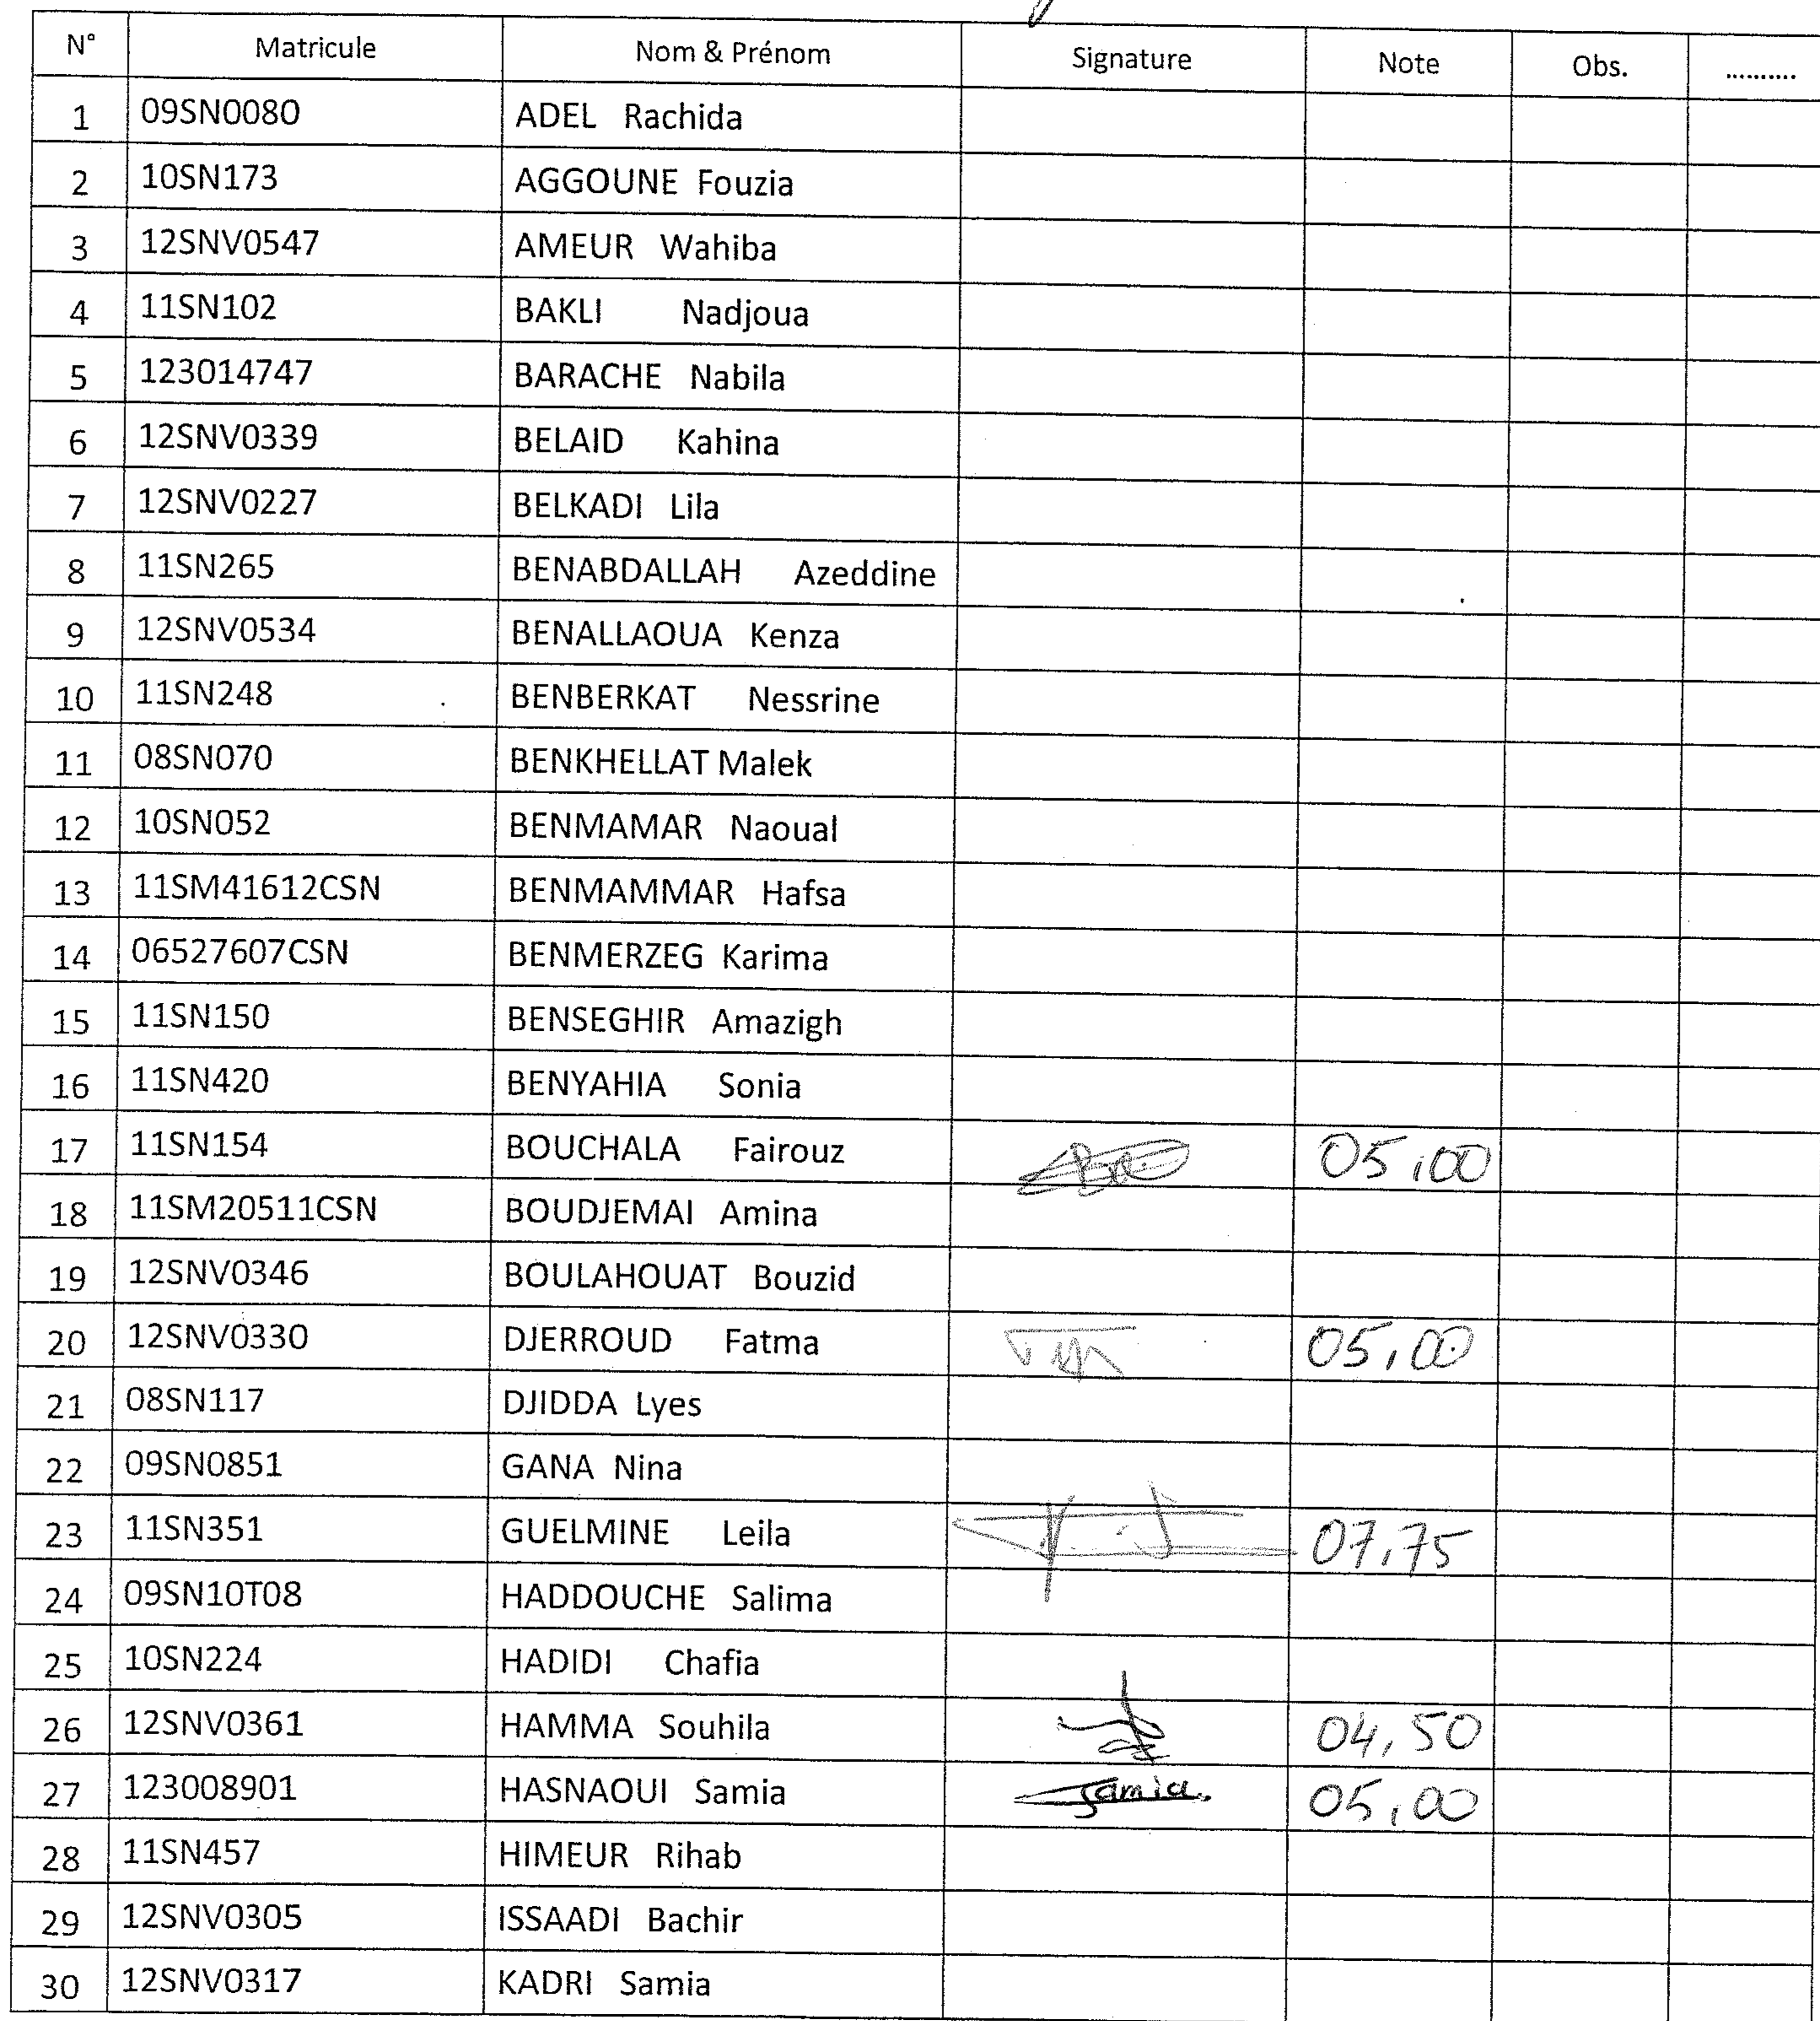 N° Matricule Nom & Prénom Signature Note Obs. ..........
1 09SN0080 ADEL Rachida
2 10SN173 AGGOUNE Fouzia
3 12SNV0547 AMEUR Wahiba
4 11SN102 BAKLI Nadjoua
5 123014747 BARACHE Nabila
6 12SNV0339 BELAID Kahina
7 12SNV0227 BELKADI Lila
8 11SN265 BENABDALLAH Azeddine
9 12SNV0534 BENALLAOUA Kenza
10 11SN248 BENBERKAT Nessrine
11 08SN070 BENKHELLAT Malek
12 10SN052 BENMAMAR Naoual
13 11SM41612CSN BENMAMMAR Hafsa
14 06527607CSN BENMERZEG Karima
15 11SN150 BENSEGHIR Amazigh
16 11SN420 BENYAHIA Sonia
17 11SN154 BOUCHALA Fairouz 05,00
18 11SM20511CSN BOUDJEMAI Amina
19 12SNV0346 BOULAHOUAT Bouzid
20 12SNV0330 DJERROUD Fatma 05,00
21 08SN117 DJIDDA Lyes
22 09SN0851 GANA Nina
23 11SN351 GUELMINE Leila 07,75
24 09SN10T08 HADDOUCHE Salima
25 10SN224 HADIDI Chafia
26 12SNV0361 HAMMA Souhila 04,50
27 123008901 HASNAOUI Samia Samia. 05,00
28 11SN457 HIMEUR Rihab
29 12SNV0305 ISSAADI Bachir
30 12SNV0317 KADRI Samia